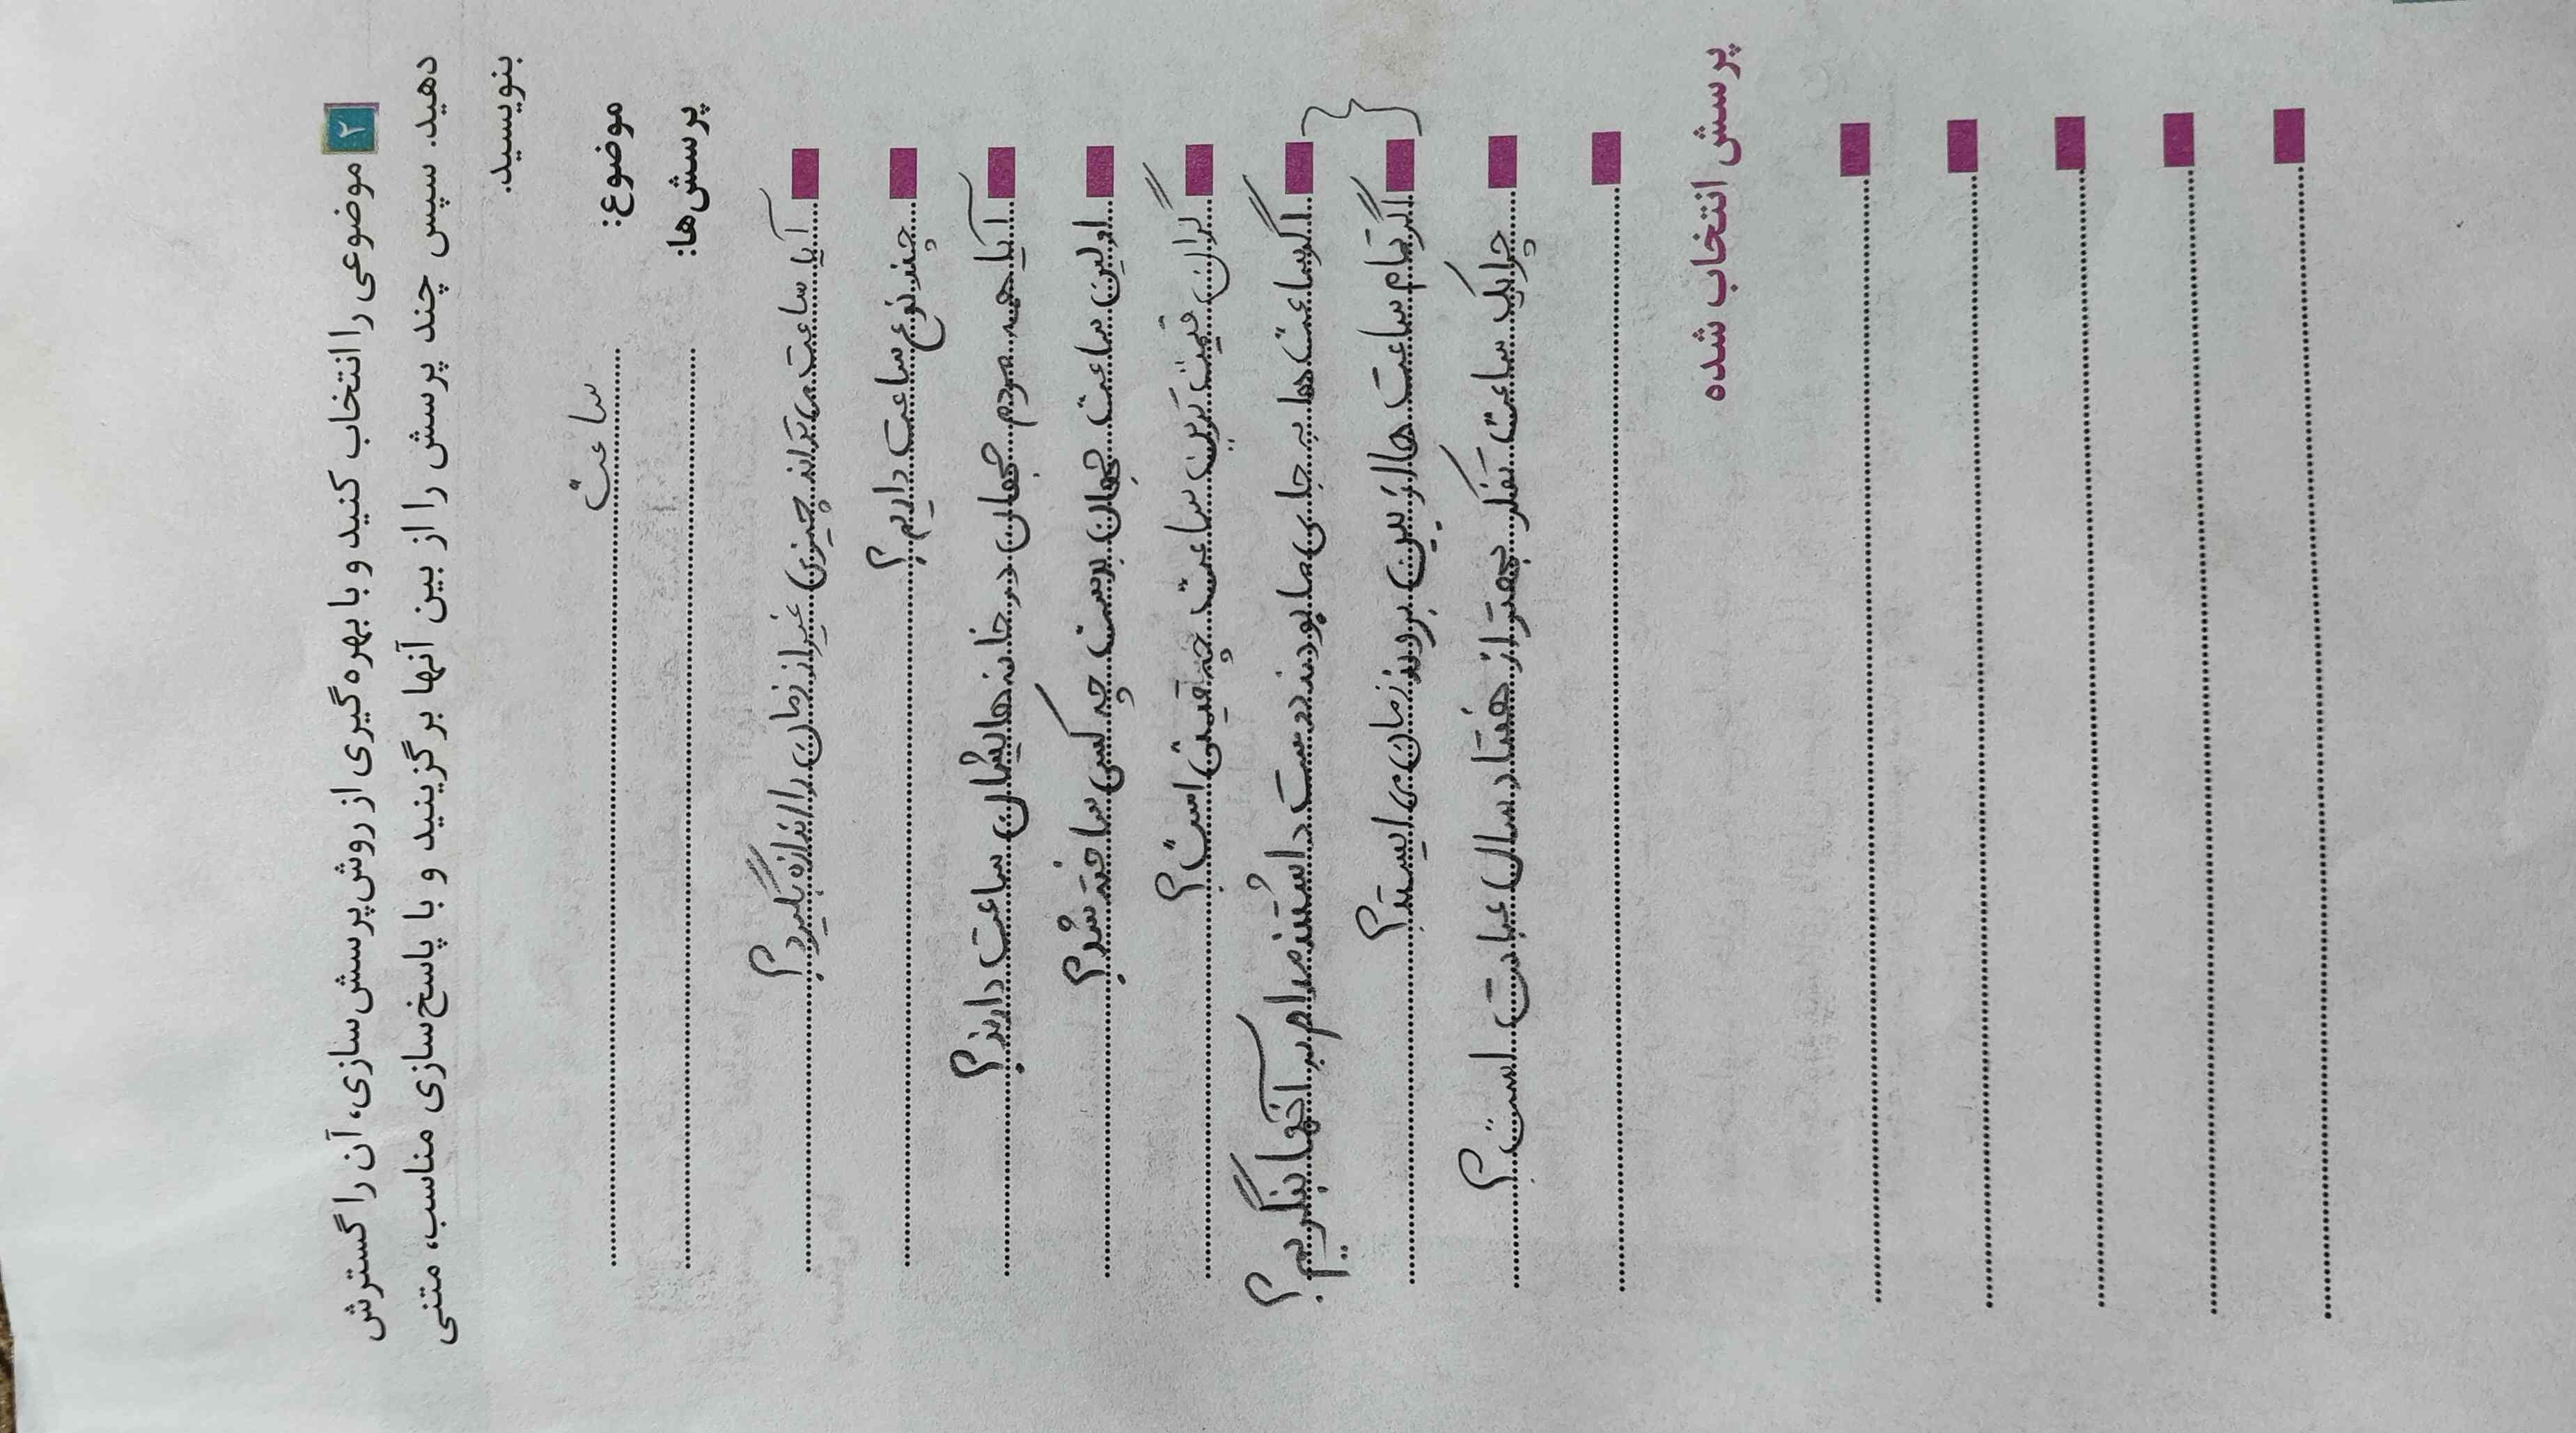 ۲ موضوعی را انتخاب کنید و با بهره‌گیری از روش پرسش‌سازی، آن را گسترش
دهید. سپس چند پرسش را از بین آنها برگزینید و با پاسخ‌سازی مناسب، متنی
بنویسید.
موضوع: ساعت
پرسش‌ها:
آیا ساعت می تواند چیزی غیر از زمان را اندازه بگیرد؟
چند نوع ساعت داریم؟
آیا همه مردم جهان در خانه هایشان ساعت دارند؟
اولین ساعت جهان بدست چه کسی ساخته شد؟
گران قیمت ترین ساعت چه قیمتی است؟
اگر ساعت ها به جای ما بودند دوست داشتند مدام به آنها بنگریم؟
اگر تمام ساعت ها از بین بروند زمان می ایستد؟
چرا یک ساعت تفکر بهتر از هفتاد سال عبادت است؟
پرسش انتخاب شده